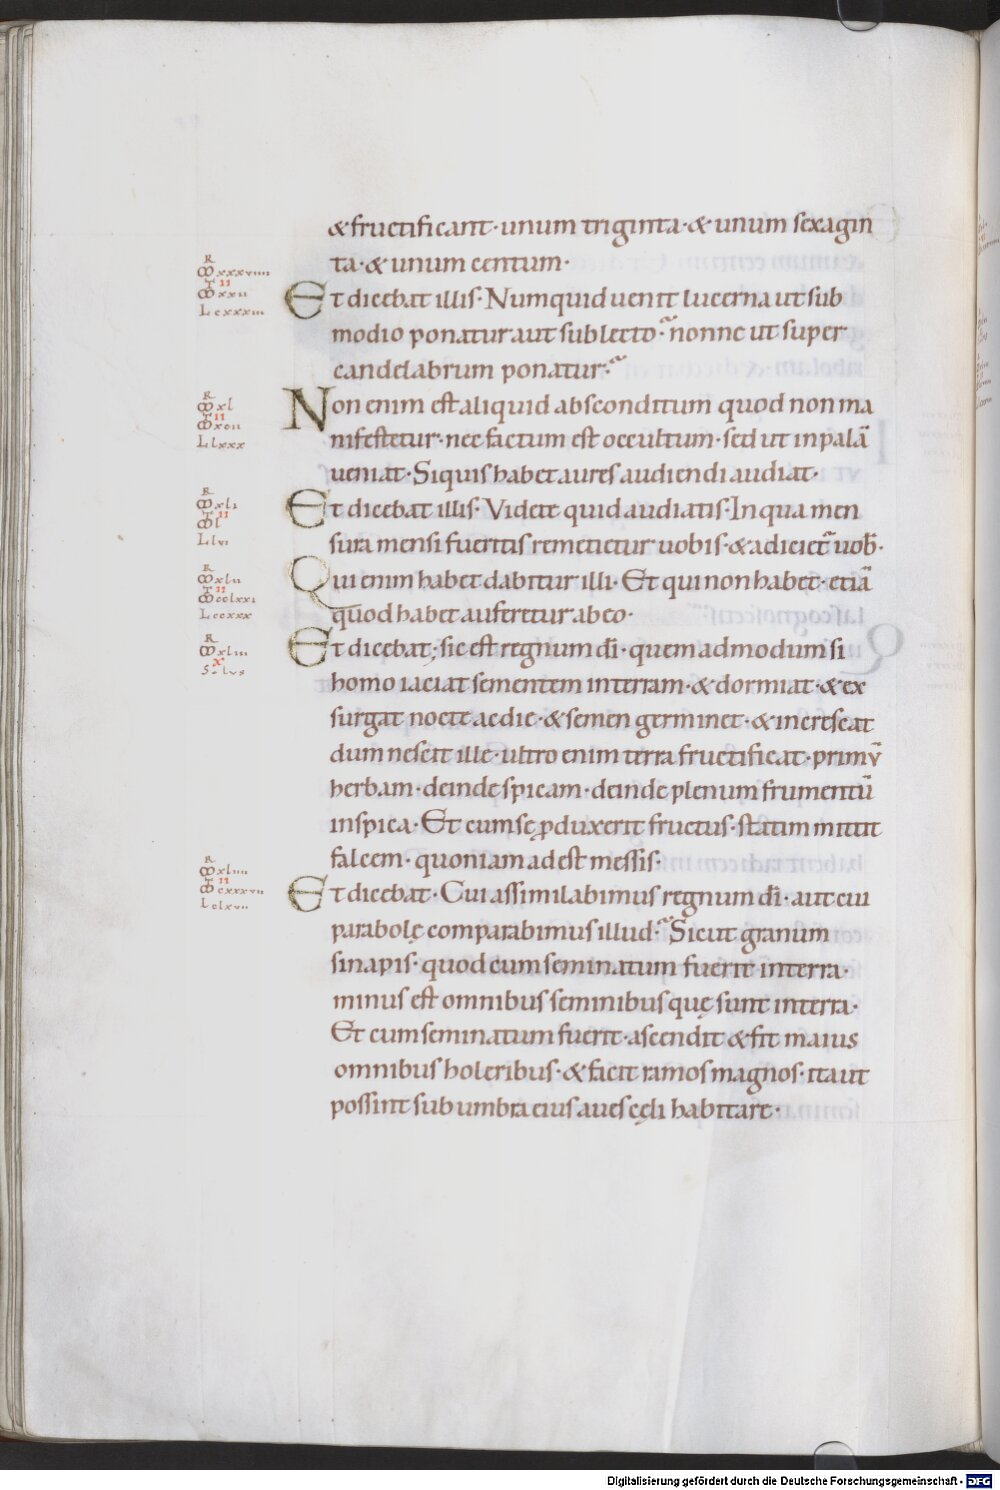 & fructificant · unum triginta · & unum sexagin
ta · & unum centum ·
Et dicebat illis · Numquid uenit lucerna ut sub
modio ponatur aut sub lecto · nonne ut super
candelabrum ponatur ·
Non enim est aliquid absconditum quod non ma
nifestetur · nec factum est occultum · sed ut in palā
ueniat · Siquis habet aures audiendi audiat ·
Et dicebat illis · Videte quid audiatis · In qua men
sura mensi fueritis remetietur uobis · & adiciet̄ uob̄ ·
Qui enim habet dabitur illi · Et qui non habet · etiā
quod habet auferetur ab eo ·
Et dicebat; sic est regnum dī · quemadmodum si
homo iaciat sementem in terram · & dormiat · & ex
surgat nocte ac die · & semen germinet · & increscat
dum nescit ille · ultro enim terra fructificat · primv̄
herbam · deinde spicam · deinde plenum frumentū
in spica · Et cum sę ꝓduxerit fructus · statim mittit
falcem · quoniam adest messis ·
Et dicebat · Cui assimilabimus regnum dī · aut cui
parabolę comparabimus illud · Sicut granum
sinapis · quod cum seminatum fuerit in terra ·
minus est omnibus seminibus quę sunt in terra ·
Et cum seminatum fuerit · ascendit & fit maius
omnibus holeribus · & facit ramos magnos · ita ut
possint sub umbra eius aues cęli habitare ·
Digitalisierung gefördert durch die Deutsche Forschungsgemeinschaft - DFG